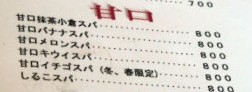 700
甘口
甘口抹茶小倉スパ 800
甘口バナナスパ 800
甘口メロンスパ 800
甘口キウイスパ 800
甘口イチゴスパ(冬、春限定) 800
しるこスパ 800